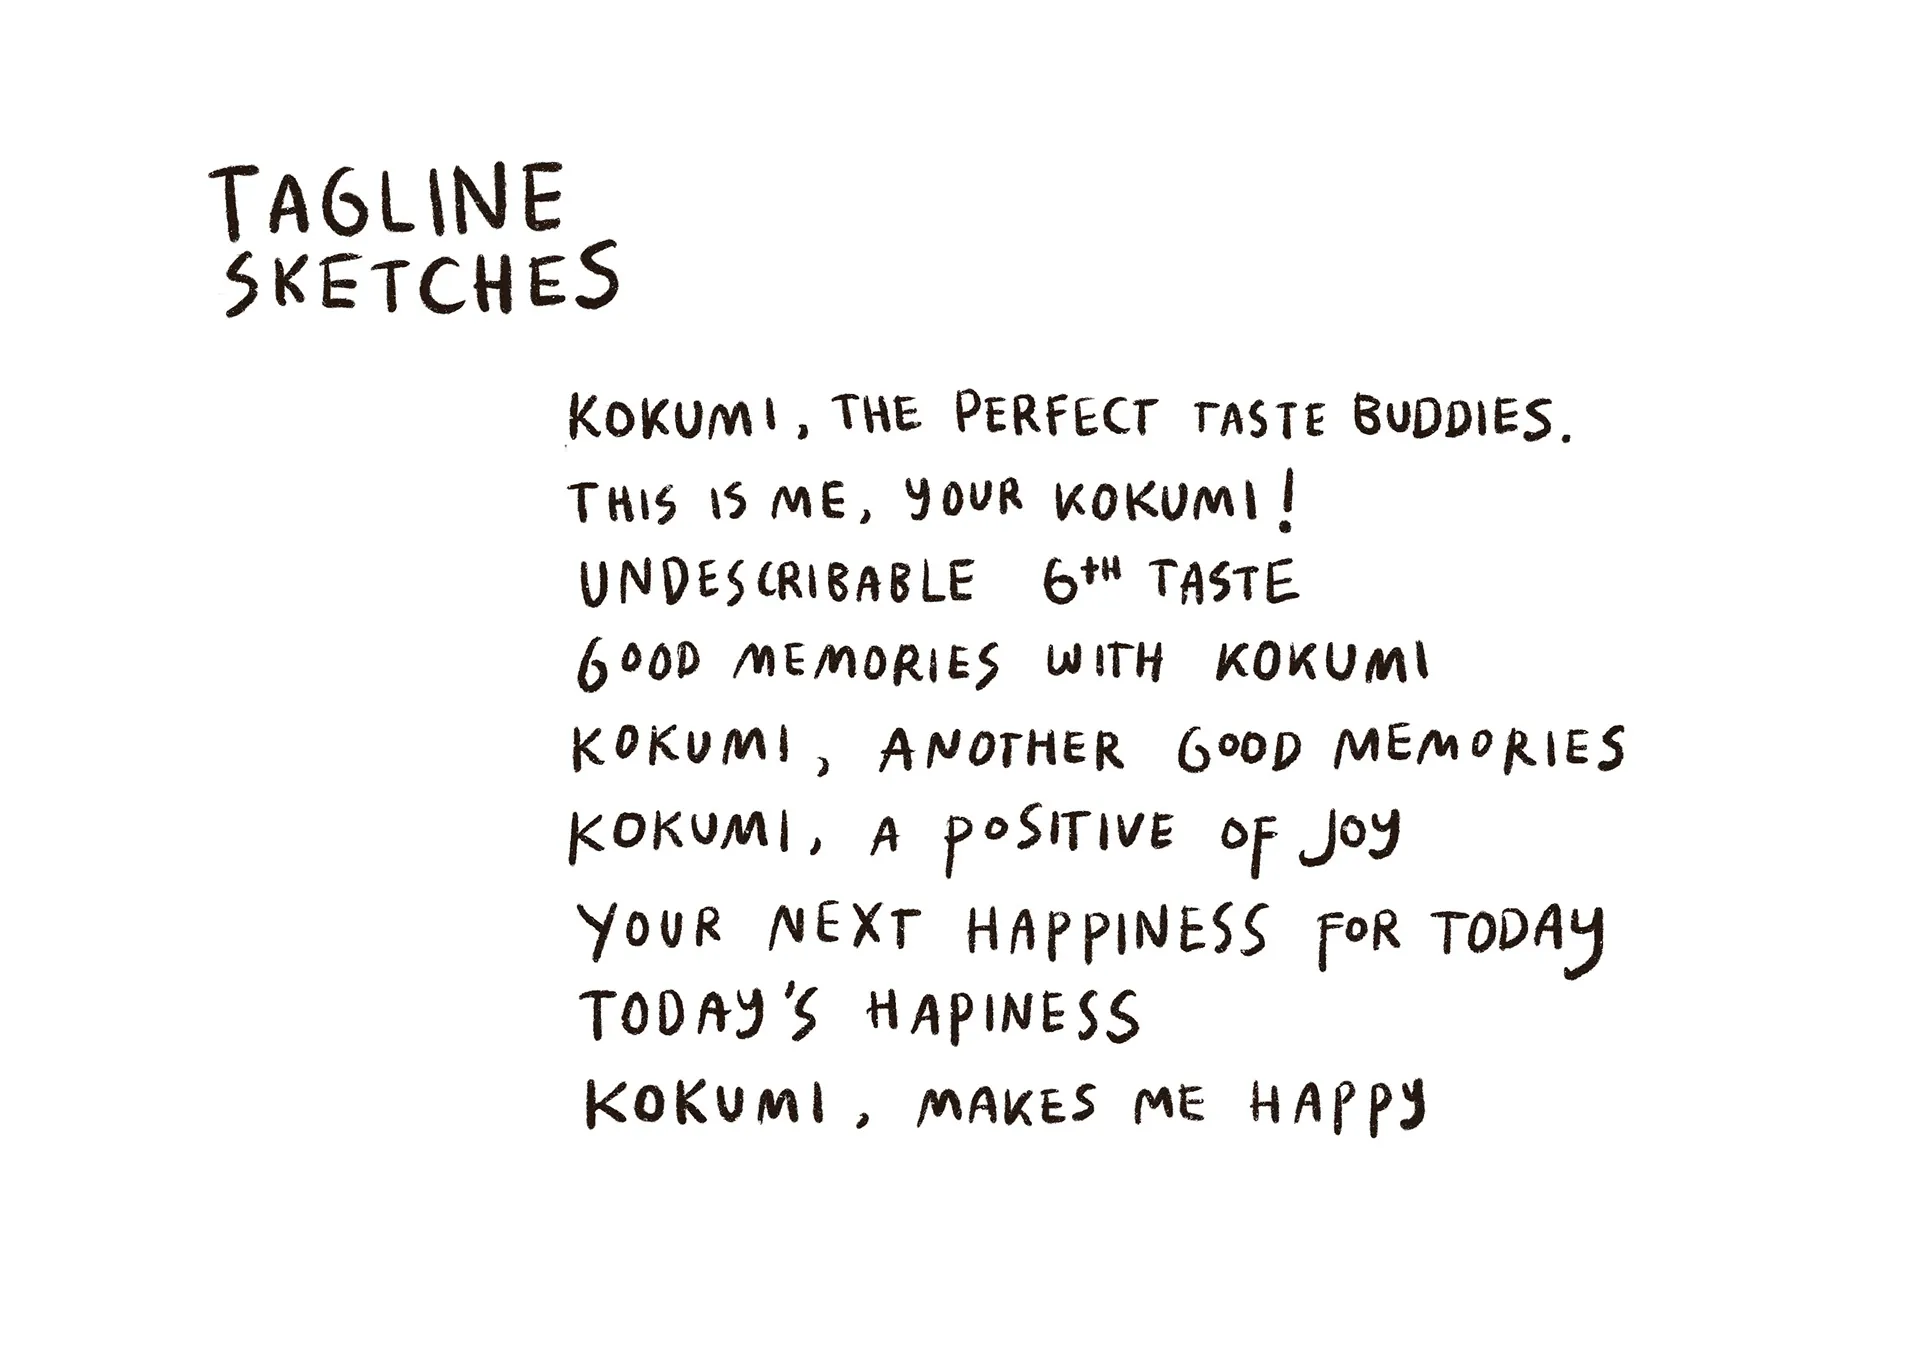 TAGLINE
SKETCHES
KOKUMI, THE PERFECT TASTE BUDDIES.
THIS IS ME, YOUR KOKUMI!
UNDESCRIBABLE 6TH TASTE
GOOD MEMORIES WITH KOKUMI
KOKUMI, ANOTHER GOOD MEMORIES
KOKUMI, A POSITIVE OF JOY
YOUR NEXT HAPPINESS FOR TODAY
TODAY'S HAPINESS
KOKUMI, MAKES ME HAPPY